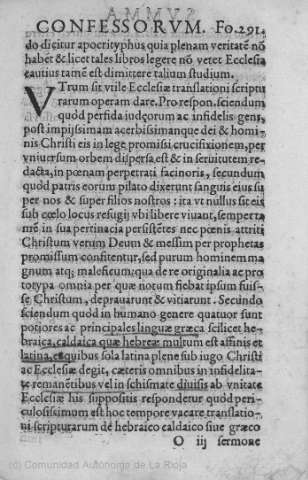 SVMMA
CONFESSORVM. Fo.291.
do dicitur apocrityphus quia plenam veritatẽ nõ
habẽt & licet tales libros legere nõ vetet Ecclesia
cautius tamẽ est dimittere talium studium.
VTrum sit vtile Ecclesiæ translationi scriptu
rarum operam dare. Pro respon. sciendum
quòd perfida iudęorum ac infidelis gens,
post impijssimam acerbissimamque dei & homi-
nis Christi eis in lege promissi crucifixionem, per
vniuersum orbem dispersa, est & in seruitutem re-
dacta, in pœnam perpetrati facinoris, secundum
quòd patris eorum pilato dixerunt sanguis eius su
per nos & super filios nostros : ita vt nullus sit eis
sub cœlo locus refugij vbi libere viuant, semper ta
mẽ in sua pertinacia persistẽtes nec pœnis attriti
Christum verum Deum & messim per prophetas
promissum confitentur, sed purum hominem ma
gnum atq; maleficum: qua de re originalia ac pro
totypa omnia per quæ notum fiebat ipsum fuis-
se Christum, deprauarunt & vitiarunt. Secundo
sciendum quòd in humano genere quatuor sunt
potiores ac principales linguæ græca scilicet he-
braica, caldaica quæ hebreæ multum est affinis et
latina, ex quibus sola latina plene sub iugo Christi
ac Ecclesiæ degit, cæteris omnibus in infidelita-
te remanẽtibus vel in schismate diuisis ab vnitate
Ecclesiæ his suppositis respondetur quòd peri-
culosissimum est hoc tempore vacare translatio-
ni scripturarum de hebraico caldaico siue græco
O iij sermone
(c) Comunidad Autónoma de La Rioja